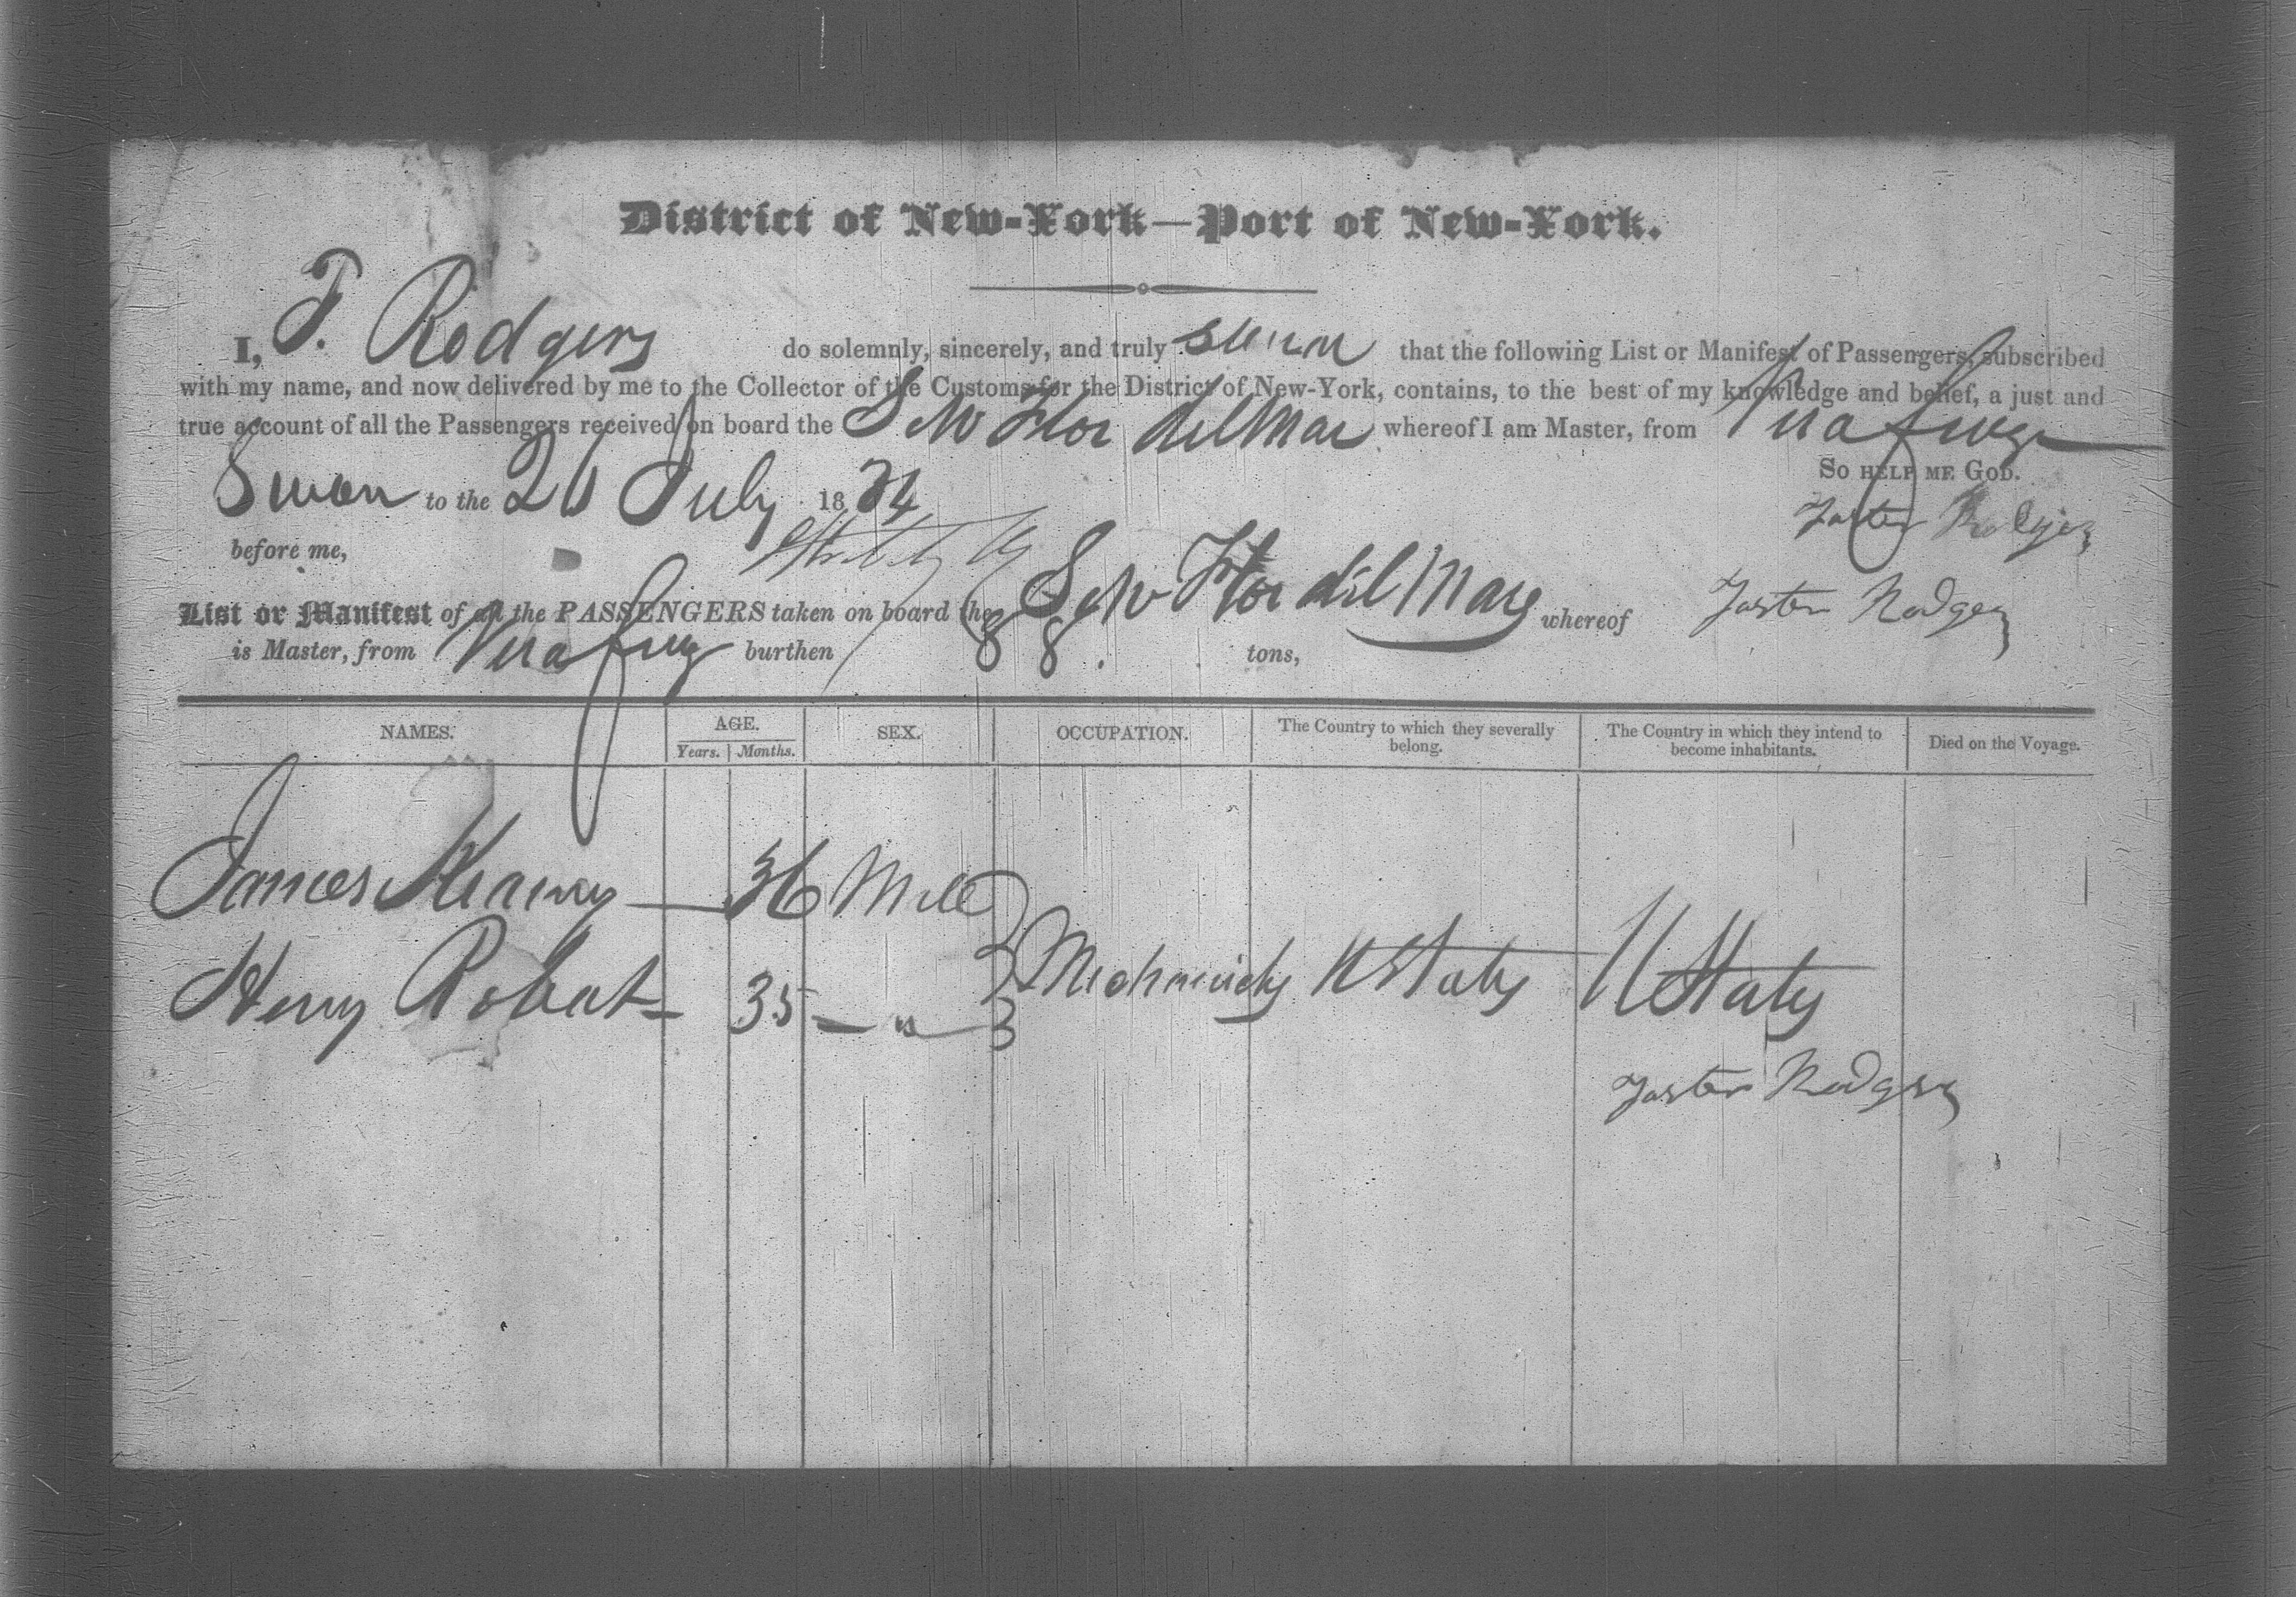 District of New-York—Port of New-York.
I, F. Rodgers do solemnly, sincerely, and truly swear that the following List or Manifest of Passengers, subscribed
with my name, and now delivered by me to the Collector of the Customs for the District of New-York, contains, to the best of my knowledge and belief, a just and
true account of all the Passengers received on board the Schr Flor del Mar whereof I am Master, from Vera Cruz
So help me God.
Sworn to the 26 July 1834
Foster Rodgers
before me,
List or Manifest of all the PASSENGERS taken on board the Schr Flor del Mar whereof Foster Rodgers
is Master, from Vera Cruz burthen 88 tons,
NAMES. AGE. SEX. OCCUPATION. The Country to which they severally belong. The Country in which they intend to become inhabitants. Died on the Voyage.
Years. Months.
James 36 Male
Henry Robert 35 — " Mechanicks U States U States
Foster Rodgers